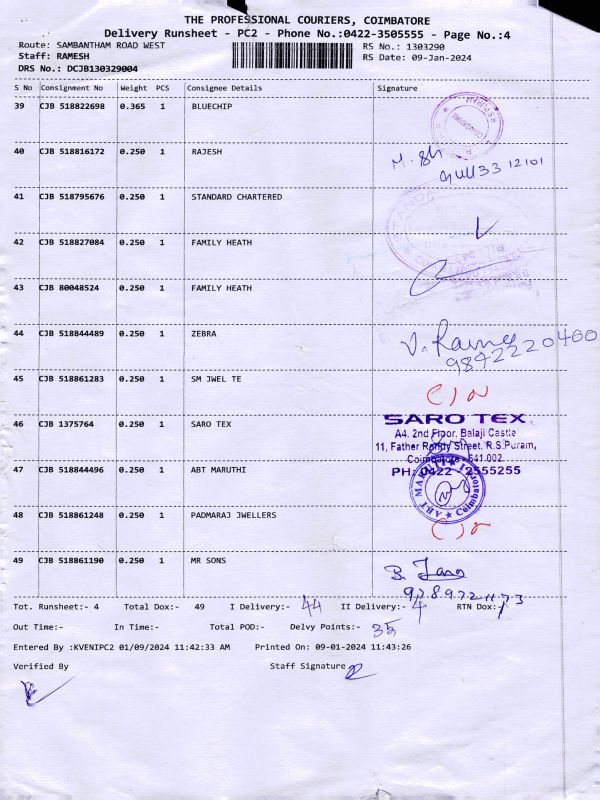 THE PROFESSIONAL COURIERS, COIMBATORE
Delivery Runsheet - PC2 - Phone No.:0422-3505555 - Page No.:4
Route: SAMBANTHAM ROAD WEST RS No.: 1303290
Staff: RAMESH RS Date: 09-Jan-2024
DRS No.: DCJB130329004
S No Consignment No Weight PCS Consignee Details Signature
39 CJB 518822698 0.365 1 BLUECHIP
40 CJB 518816172 0.250 1 RAJESH
12101
41 CJB 518795676 0.250 1 STANDARD CHARTERED
42 CJB 518827084 0.250 1 FAMILY HEATH
43 CJB 80048524 0.250 1 FAMILY HEATH
44 CJB 518844489 0.250 1 ZEBRA
9842220400
45 CJB 518861283 0.250 1 SM JWEL TE
46 CJB 1375764 0.250 1 SARO TEX
SARO TEX
A4, 2nd Floor, Balaji Castle
11, Father Randy Street, R.S.Puram,
Coimbatore - 641 002
PH: 0422 - 2555255
47 CJB 518844496 0.250 1 ABT MARUTHI
ABT MARUTI Coimbatore
48 CJB 518861248 0.250 1 PADMARAJ JWELLERS
49 CJB 518861190 0.250 1 MR SONS
Tot. Runsheet:- 4 Total Dox:- 49 I Delivery:- 44 II Delivery:- 4 RTN Dox:-
Out Time:- In Time:- Total POD:- Delvy Points:- 35
Entered By :KVENIPC2 01/09/2024 11:42:33 AM Printed On: 09-01-2024 11:43:26
Verified By Staff Signature